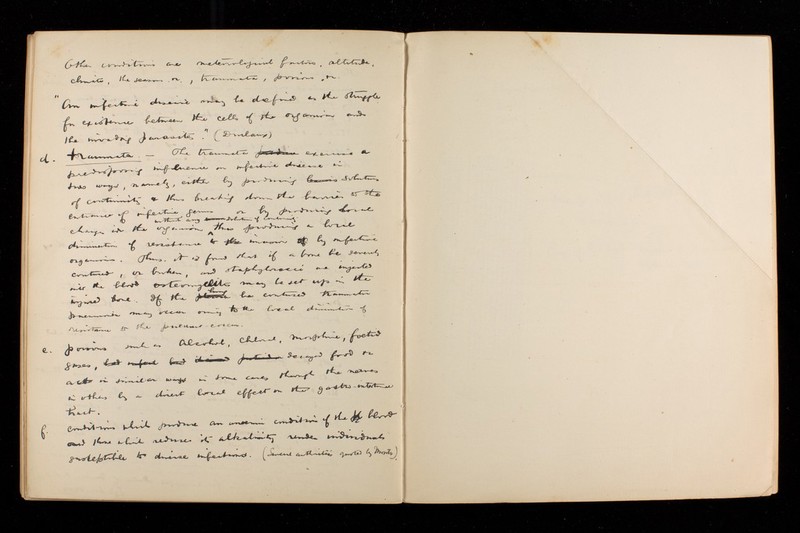 Other conditions are meteorological factors, altitude,
climate, the season or, traumata, poisons, or
"An infective disease may be defined as the struggle
for existence between the cells of the organism and
the invading parasite." (Duclaux)
d. Traumata — The traumata produce exercise a
predisposing influence on infective disease in
two ways, namely, either by producing solution
of continuity & thus breaking down the barrier to the
entrance of infective germs or by producing local
without any solution of continuity
change in the organism thus producing a local
diminution of resistance to the invasion of by infective
organisms. Thus, it is found that if a bone be severely
contused, or broken, and staphylococci are injected
into the blood osteomyelitis may be set up in the
lung
injured bone. If the be contused traumatic
pneumonia may occur owing to the local diminution of
resistance to the pneumococcus.
e. Poisons such as Alcohol, Chloral, morphine, foetid
gases, bad decayed food or
act in similar ways in some cases through the nerves
in others by a direct local effect on the gastro-intestinal
tract.
f. Conditions which produce an anaemic condition of the blood
and those which reduce its alkalinity render individuals
susceptible to diverse infections. (Several authorities quoted by)